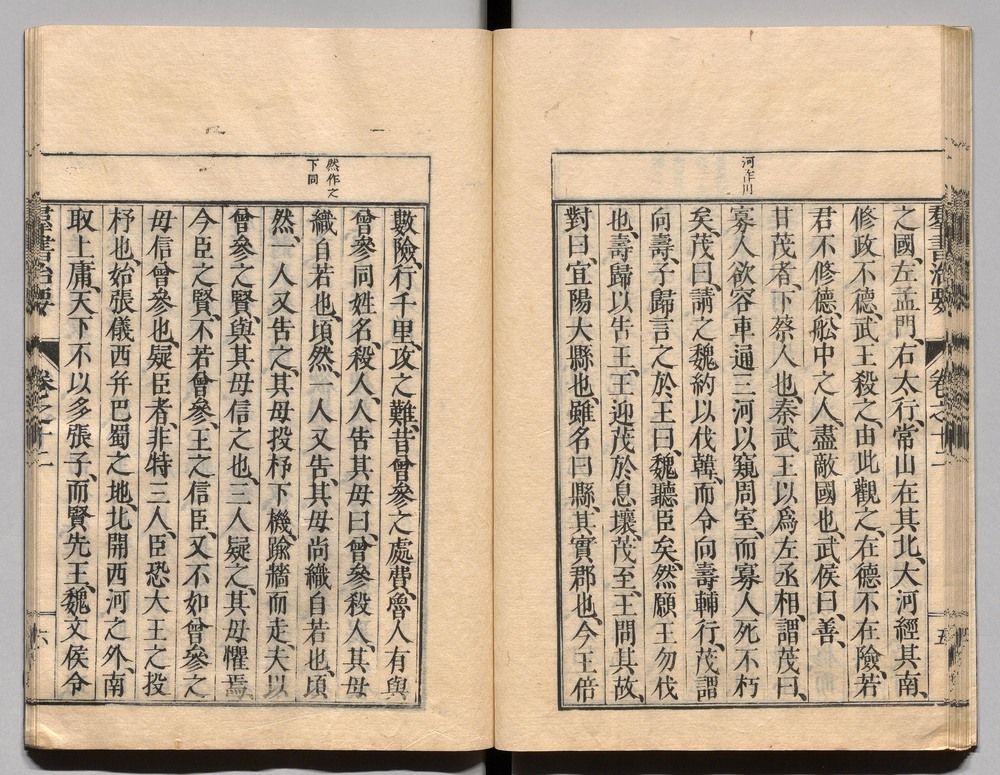 群書治要 卷之十二 五
河作川
之國、左孟門、右太行、常山在其北、大河經其南、
修政不德、武王殺之、由此觀之、在德不在險、若
君不修德、舩中之人盡敵國也、武侯曰、善、
甘茂者、下蔡人也、秦武王以爲左丞相、謂茂曰、
寡人欲容車通三河以窺周室、而寡人死不朽
矣、茂曰、請之魏約以伐韓、而令向壽輔行、茂謂
向壽、子歸言之於王曰、魏聽臣矣、然願王勿伐
也、壽歸以告王、王迎茂於息壤、茂至、王問其故、
對曰、宜陽大縣也、雖名曰縣、其實郡也、今王倍
然作之
下同
數險、行千里、攻之難、昔曾參之處費、魯人有與
曾參同姓名、殺人、人告其母曰、曾參殺人、其母
織自若也、頃然、一人又告、其母尚織自若也、頃
然、一人又告之、其母投杼下機、踰牆而走、夫以
曾參之賢、與其母信之也、三人疑之、其母懼焉、
今臣之賢、不若曾參、王之信臣、又不如曾參之
母信曾參也、疑臣者、非特三人、臣恐大王之投
杼也、始張儀西幷巴蜀之地、北開西河之外、南
取上庸、天下不以多張子、而賢先王、魏文侯令
群書治要 卷之十二 六